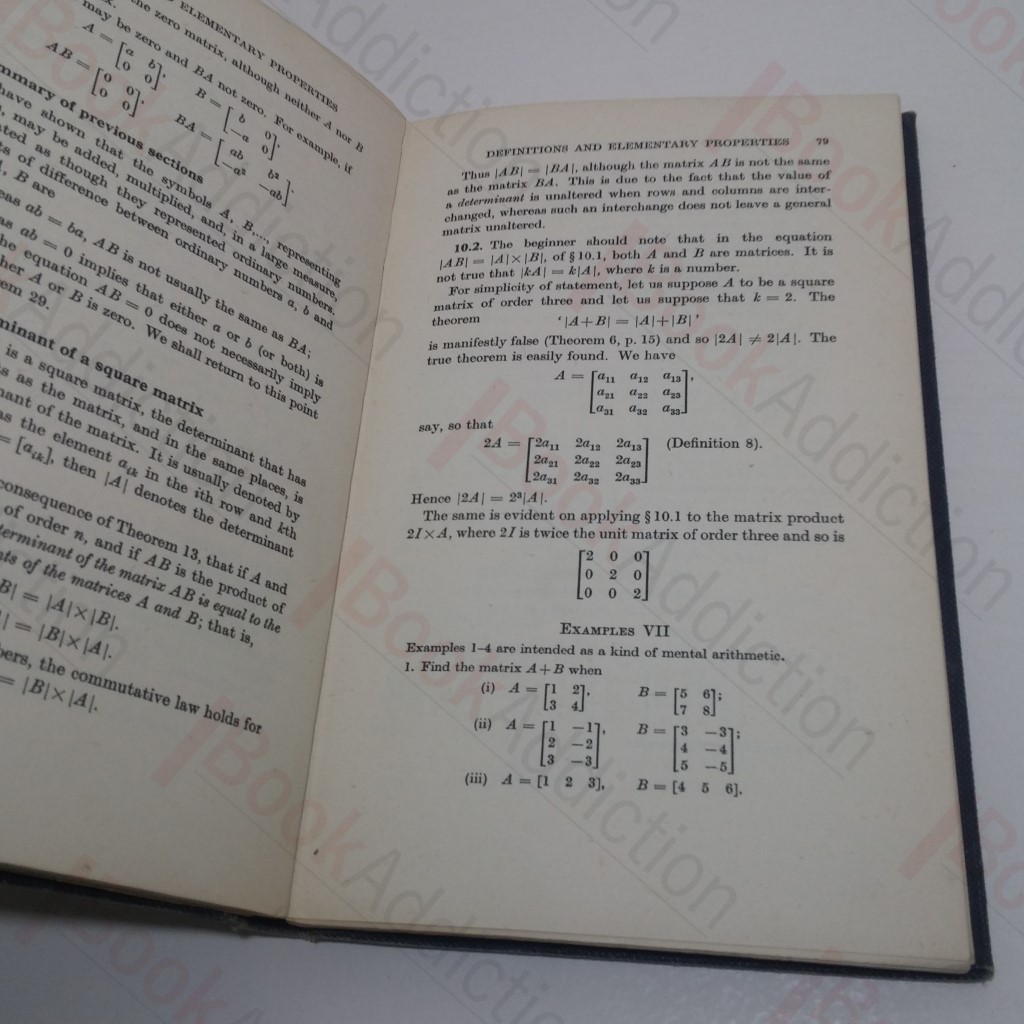 D ELEMENTARY PROPERTIES
the zero matrix, although neither A nor B
may be zero and BA not zero. For example, if
A = [a b; 0 0], B = [b 0; −a 0],
AB = [0 0; 0 0], BA = [ab b²; −a² −ab].
mmary of previous sections
have shown that the symbols A, B,..., representing
may be added, multiplied, and, in a large measure,
ted as though they represented ordinary numbers.
ts of difference between ordinary numbers a, b and
A, B are
eas ab = ba, AB is not usually the same as BA;
as ab = 0 implies that either a or b (or both) is
he equation AB = 0 does not necessarily imply
her A or B is zero. We shall return to this point
em 29.
minant of a square matrix
is a square matrix, the determinant that has
s as the matrix, and in the same places, is
nant of the matrix. It is usually denoted by
as the element aik in the ith row and kth
= [aik], then |A| denotes the determinant
consequence of Theorem 13, that if A and
of order n, and if AB is the product of
terminant of the matrix AB is equal to the
nts of the matrices A and B; that is,
B| = |A|×|B|.
| = |B|×|A|.
bers, the commutative law holds for
= |B|×|A|.
DEFINITIONS AND ELEMENTARY PROPERTIES 79
Thus |AB| = |BA|, although the matrix AB is not the same
as the matrix BA. This is due to the fact that the value of
a determinant is unaltered when rows and columns are inter-
changed, whereas such an interchange does not leave a general
matrix unaltered.
10.2. The beginner should note that in the equation
|AB| = |A|×|B|, of § 10.1, both A and B are matrices. It is
not true that |kA| = k|A|, where k is a number.
For simplicity of statement, let us suppose A to be a square
matrix of order three and let us suppose that k = 2. The
theorem ‘|A+B| = |A|+|B|’
is manifestly false (Theorem 6, p. 15) and so |2A| ≠ 2|A|. The
true theorem is easily found. We have
A = [a11 a12 a13],
a21 a22 a23
a31 a32 a33
say, so that
2A = [2a11 2a12 2a13] (Definition 8).
2a21 2a22 2a23
2a31 2a32 2a33
Hence |2A| = 2³|A|.
The same is evident on applying § 10.1 to the matrix product
2I×A, where 2I is twice the unit matrix of order three and so is
[2 0 0]
0 2 0
0 0 2
EXAMPLES VII
Examples 1–4 are intended as a kind of mental arithmetic.
1. Find the matrix A+B when
(i) A = [1 2], B = [5 6];
3 4 7 8
(ii) A = [1 −1], B = [3 −3];
2 −2 4 −4
3 −3 5 −5
(iii) A = [1 2 3], B = [4 5 6].